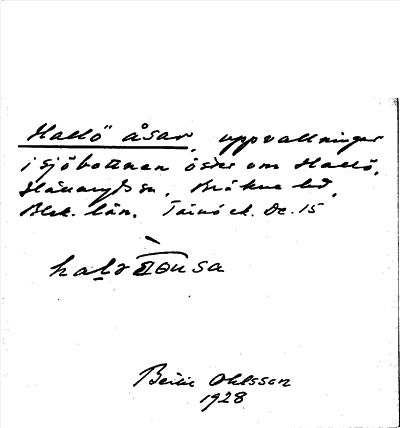 Hallö åsar, uppvallningar
i sjöbottnen öster om Hallö,
Hällaryds sn, Bräkne hd,
Blek. län. Tärnö ek. De. 15
Bertil Ohlsson
1928